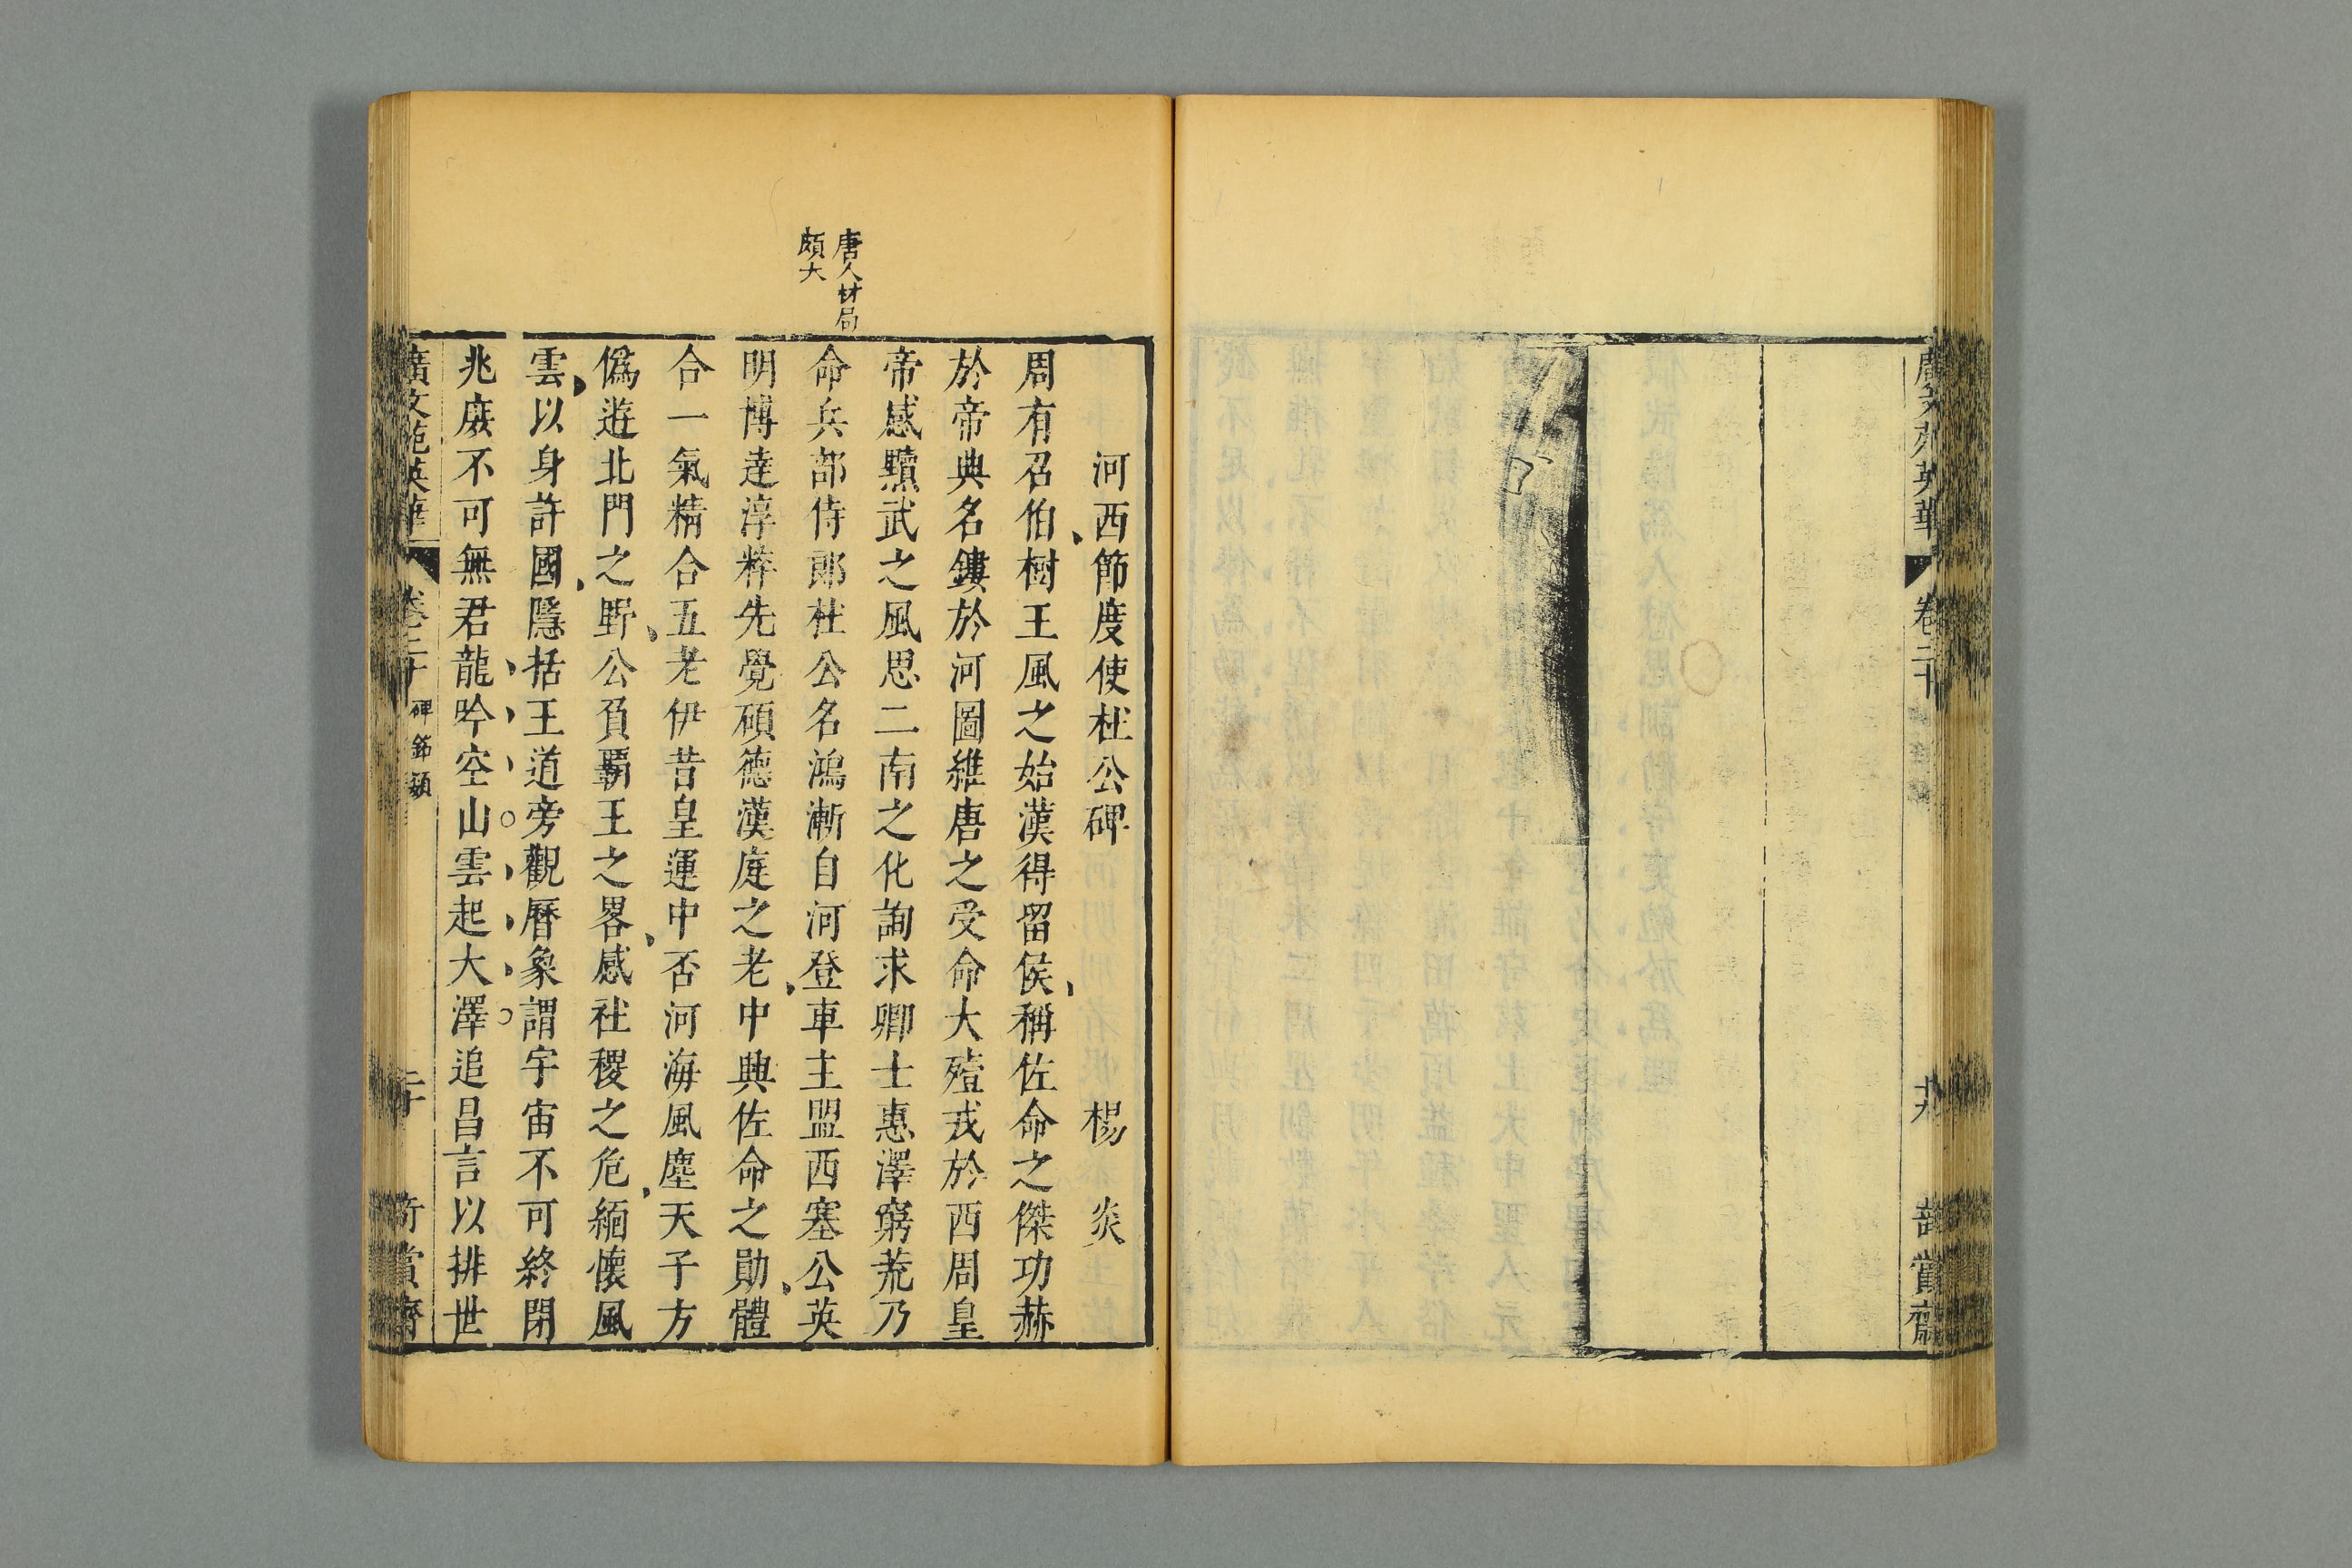 廣文苑英華 卷二十 十九 奇賞齋
唐人材局
頗大
河西節度使杜公碑 楊炎
周有召伯樹王風之始漢得留侯稱佐命之傑功赫
於帝典名鏤於河圖維唐之受命大殪戎於西周皇
帝感黷武之風思二南之化詢求卿士惠澤窮荒乃
命兵部侍郎杜公名鴻漸自河登車主盟西塞公英
明博達淳粹先覺碩德漢庭之老中興佐命之勛體
合一氣精合五老伊昔皇運中否河海風塵天子方
僞遊北門之野公負覇王之畧感社稷之危緬懷風
雲以身許國隱括王道旁觀曆象謂宇宙不可終閉
兆庶不可無君龍吟空山雲起大澤追昌言以排世
廣文苑英華 卷二十 碑銘類 二十 奇賞齋